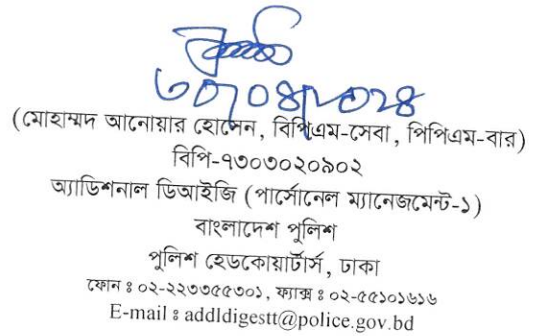 ৩০/০৪/২০২৪
(মোহাম্মদ আনোয়ার হোসেন, বিপিএম-সেবা, পিপিএম-বার)
বিপি-৭৩০৩০২০৯০২
অ্যাডিশনাল ডিআইজি (পার্সোনেল ম্যানেজমেন্ট-১)
বাংলাদেশ পুলিশ
পুলিশ হেডকোয়ার্টার্স, ঢাকা
ফোন ঃ ০২-২২৩৩৫৫৩০১, ফ্যাক্স ঃ ০২-৫৫১০১৬১৬
E-mail ঃ addldigestt@police.gov.bd